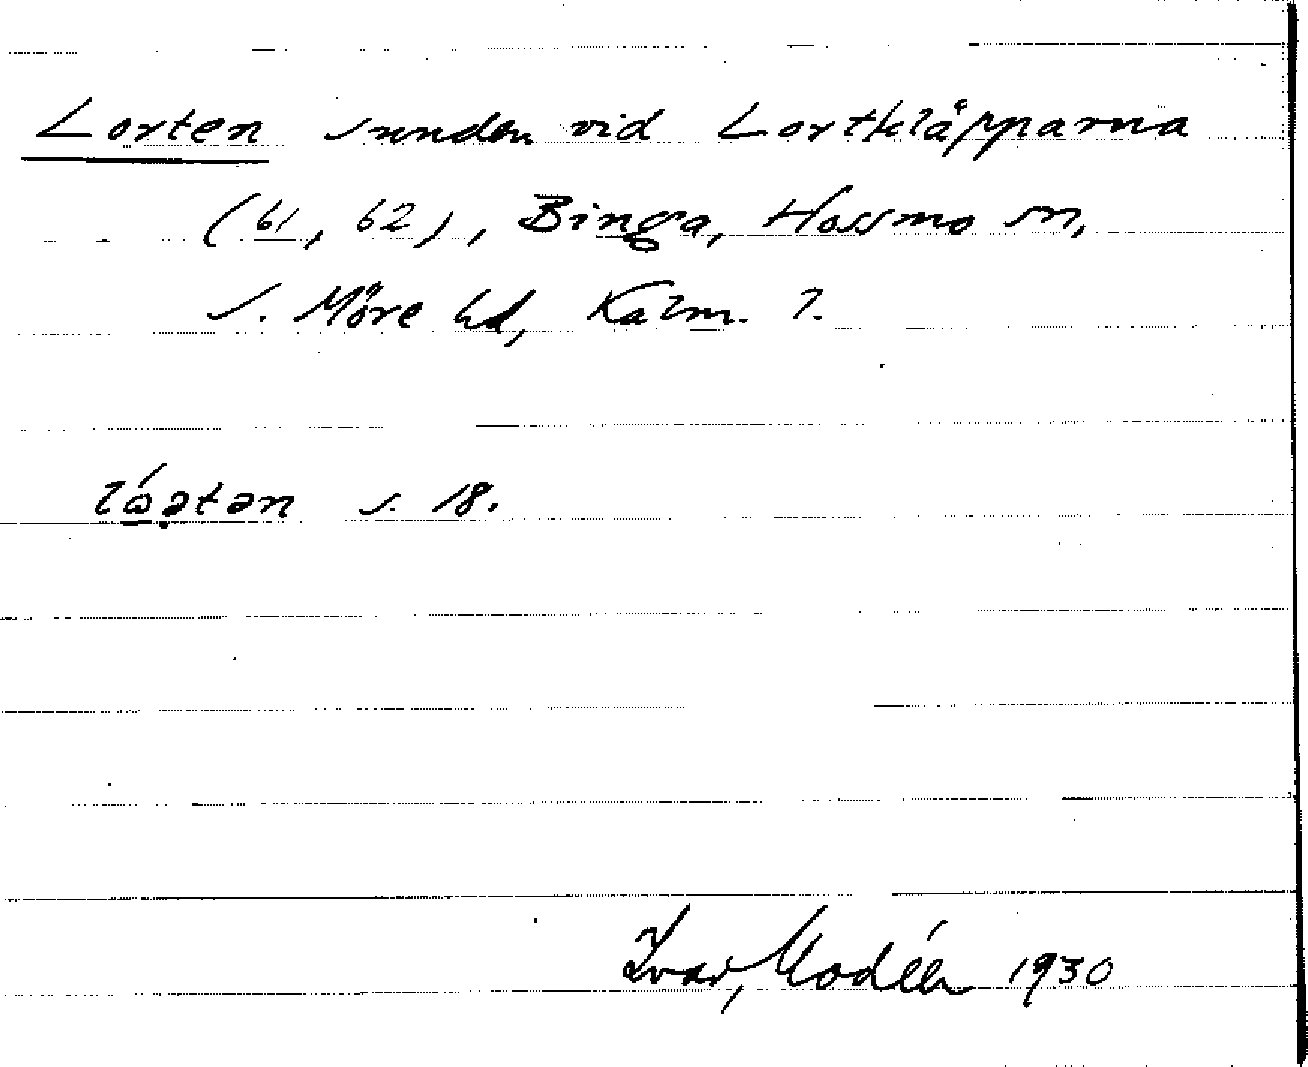 Lorten sunden vid Lortklåpparna
(61, 62), Binga, Hossmo sn,
S. Möre hd, Kalm. l.
s. 18.
Ivar Modéer 1930